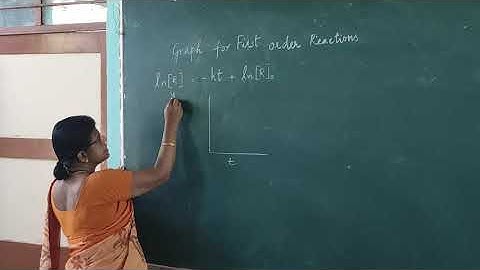 Graph for First order Reactions
ln[R] = -kt + ln[R]₀
y
t